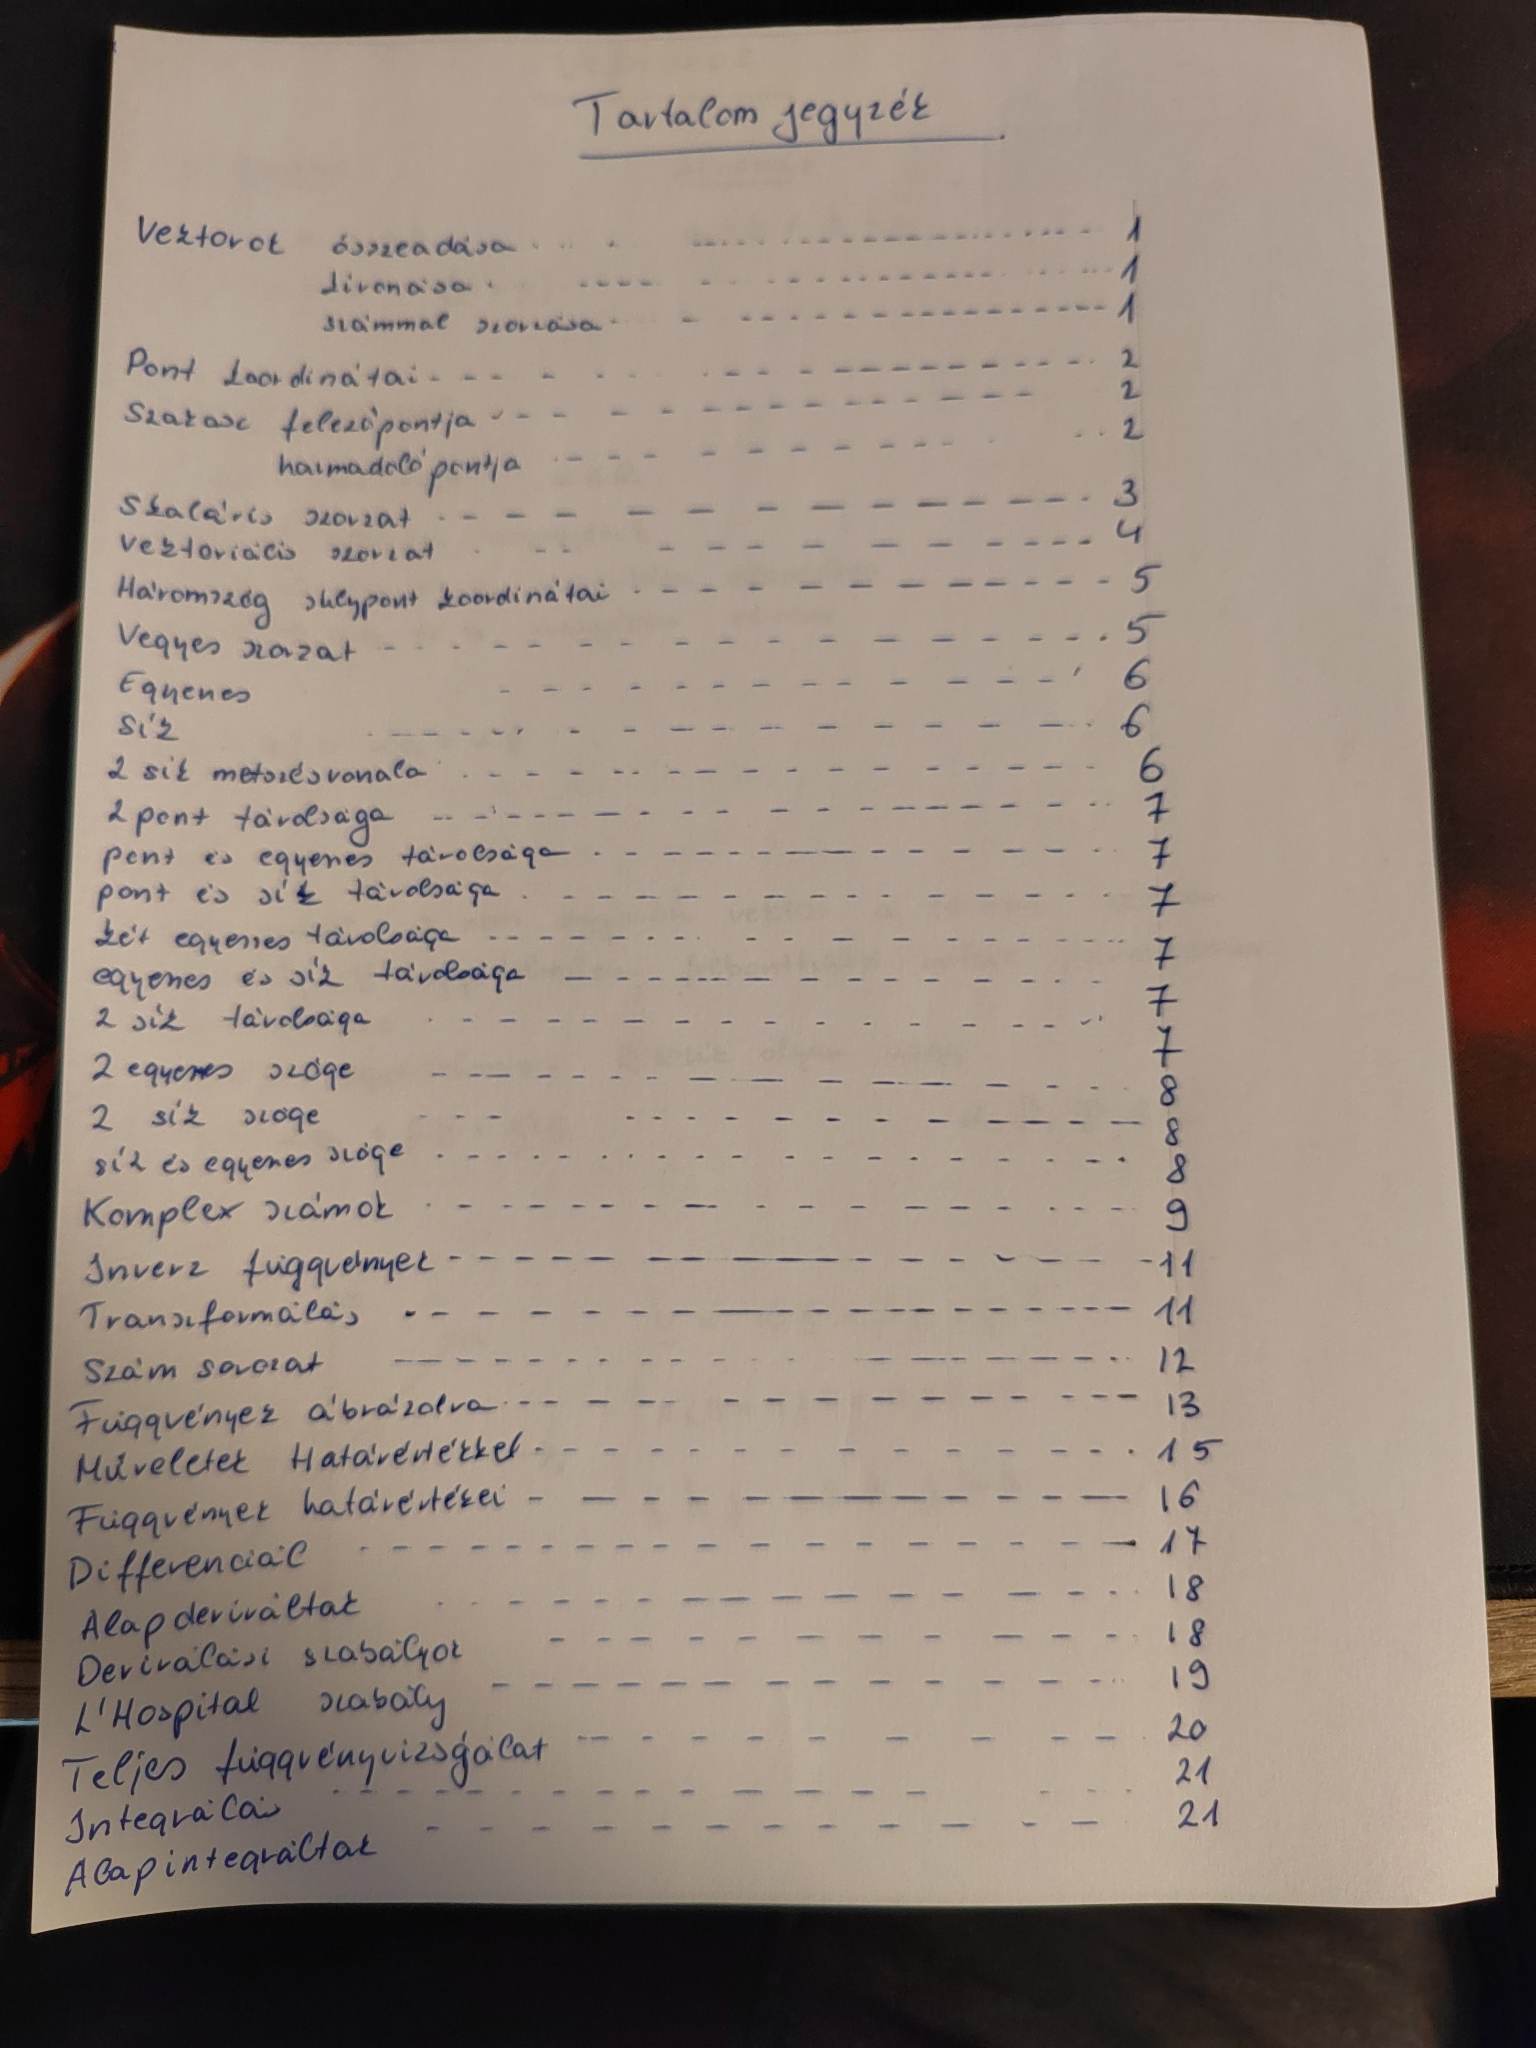 Tartalom jegyzék
Vektorok összeadása 1
kivonása 1
számmal szorzása 1
Pont koordinátái 2
Szakasz felezőpontja 2
harmadoló pontja 2
Skaláris szorzat 3
Vektoriális szorzat 4
Háromszög súlypont koordinátái 5
Vegyes szorzat 5
Egyenes 6
Sík 6
2 sík metszésvonala 6
2 pont távolsága 7
pont és egyenes távolsága 7
pont és sík távolsága 7
két egyenes távolsága 7
egyenes és sík távolsága 7
2 sík távolsága 7
2 egyenes szöge 8
2 sík szöge 8
sík és egyenes szöge 8
Komplex számok 9
Inverz függvények 11
Transzformálás 11
Szám sorozat 12
Függvények ábrázolva 13
Műveletek Határértékkel 15
Függvények határértékei 16
Differenciál 17
Alap deriváltak 18
Deriválási szabályok 18
L'Hospital szabály 19
Teljes függvényvizsgálat 20
Integrálás 21
Alap integráltak 21